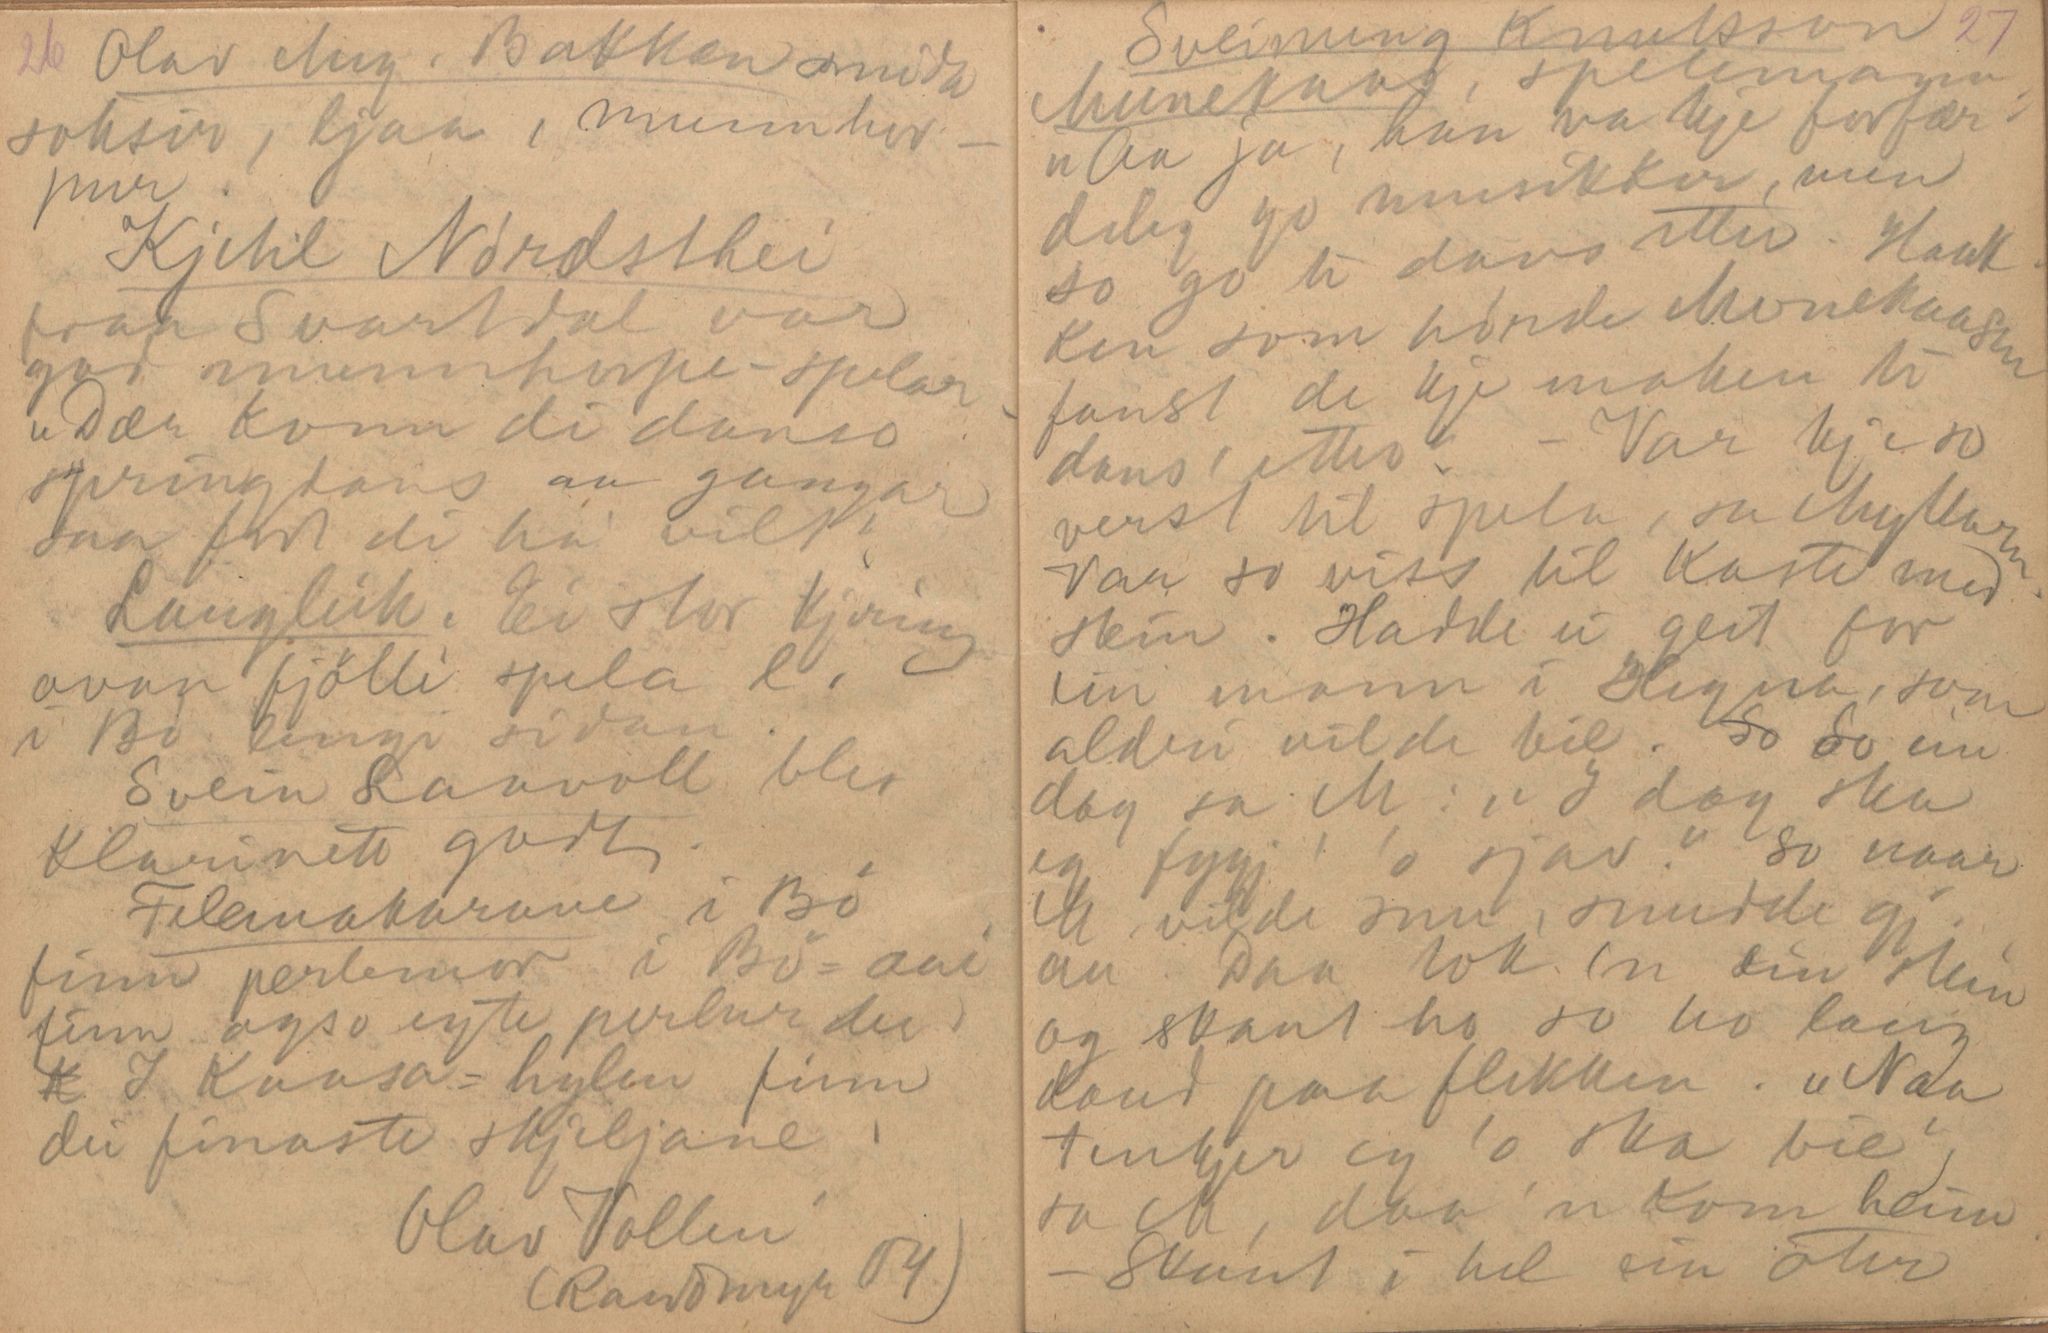 26 Olav Aug. Bakken smida
soksir, ljaa, munnhor-
pur.
Kjetil Nördsthei
fraa Svartdal var
god munnhorpe-spelar.
"Dær konn di danso
springdans aa gangar
saa fort di ha' vilt"
Langleik. Ei stor kjering
ovan fjölli spela l.
i Bö lengi sidan.
Svein Laavoll bles
klarinett godt.
Felemakarane i Bö
finn perlemor i Bö=aai
finn ogso egte perlur dei
I Kaasa=hylen finn
dei finaste skjeljane.
Olav Vollen
(Randmyr 54)
27
Sveinung Knutsson
Munekaas, spelemann.
"Aa ja, han va kje forfær-
deleg go musikkor, men
so go te dans etter. Haak-
ken som hörde Munekaasen
fanst de kje maken te
dans' etter". - Var kje so
verst til spela, sa Myllarn.
Var so viss til kaste med
stein. Hadde ei geit for
ein mann i Hegna, som
aldri vilde bie. So ein
dag sa M: "I dag ska
eg fygj' 'o sjav." So naar
M vilde snu, snudde gj.
au. Daa tok 'n ein stein
og skaut ho so ho laag
daud paa flekken. "Naa
tenkjer eg 'o ska bie",
sa M, daa 'n kom heim
- Skaut i hel ein oter